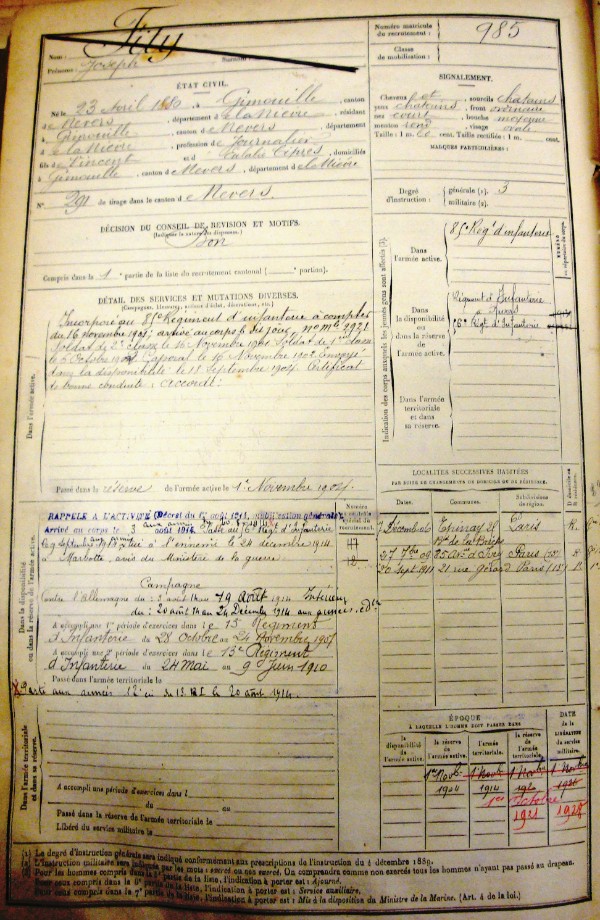 Nom : Fity
Prénoms : Joseph
Numéro matricule
du recrutement :
985
Classe
de mobilisation :
ÉTAT CIVIL.
Né le 23 Avril 1880, à Gimouille, canton
de Nevers, département de la Nièvre, résidant
à Gimouille, canton de Nevers, département
de la Nièvre, profession de Journalier
fils de Vincent et d domiciliés
à Gimouille, canton de Nevers, département de la Nièvre
N° 291 de tirage dans le canton de Nevers.
SIGNALEMENT.
Cheveux et sourcils châtains
yeux châtains, front ordinaire
nez court, bouche moyenne
menton rond, visage ovale
Taille : 1 m. cent. Taille rectifiée : 1 m. cent.
MARQUES PARTICULIÈRES :
Degré
d'instruction :
générale (1). 3
militaire (2).
DÉCISION DU CONSEIL DE REVISION ET MOTIFS.
Bon
Compris dans la 1e partie de la liste du recrutement cantonal ( portion).
DÉTAIL DES SERVICES ET MUTATIONS DIVERSES.
(Campagnes, blessures, actions d'éclat, décorations, etc.)
Incorporé au 85e Régiment d'infanterie à compter
du 16 novembre 1901; arrivé au corps le dit jour, no mle 2921
Soldat de 2e classe le 16 Novembre 1901. Soldat de 1ère classe
le 5 Octobre Caporal le 16 Novembre 1902. Envoyé
dans la disponibilité le 18 Septembre 1904. Certificat
de bonne conduite : accordé.
Passé dans la réserve de l'armée active le 1er Novembre 1904.
Dans l'armée active.
Indication des corps auxquels les jeunes gens sont affectés (3).
Dans
l'armée active.
85e Régt d'infanterie
NUMÉRO
Dans
la disponibilité
ou dans la réserve
de l'armée active.
Régiment d'Infanterie
Régt d'Infanterie
Dans l'armée
territoriale et dans
sa réserve.
LOCALITÉS SUCCESSIVES HABITÉES
PAR SUITE DE CHANGEMENTS DE DOMICILE OU DE RÉSIDENCE.
Dates.
Communes.
Subdivisions
de région.
D domicile ou
R résidence.
Décembre Épinay Paris R.
27 09 Ivry Paris R
20 Septe 1911 21 rue Gérard Paris (15)
Dans la disponibilité
ou dans la réserve de l'armée active.
RAPPELÉ A L'ACTIVITÉ (Décret du 1er août 1914, mobilisation générale)
Arrivé au corps le 3 août 1914. Passé au d'Infanterie
le 9 Septembre 1914. Tué à l'ennemi le 24 décembre 1914
à Marbotte, avis du Ministère de la guerre.
Campagne
Contre l'Allemagne du : 3 août 14 au 19 Août 1914 Intérieur
du : 20 août 14 au 24 Décembre 1914. aux armées.
A accompli une 1re période d'exercices dans le 13e Régiment
d'Infanterie du 28 Octobre au 24 Novembre 1907
A accompli une 2e période d'exercices dans le 13e Régiment
d'Infanterie du 24 Mai au 9 Juin 1910
Passé dans l'armée territoriale le
Parti aux armées 12e cie du 13. RI le 20 août 1914.
Dans l'armée territoriale
et dans sa réserve.
A accompli une période d'exercices dans l
du au
Passé dans la réserve de l'armée territoriale le
Libéré du service militaire le
ÉPOQUE
À LAQUELLE L'HOMME DOIT PASSER DANS
la
disponibilité
de l'armée
active.
la réserve
de l'armée
active.
l'armée
territoriale.
la réserve
de l'armée
territoriale.
DATE
de la
LIBÉRATION
du service
militaire.
1er Novbre 1 Novbre 1 Novbre 1 Novbre
1904 1914 1920
1er Octobre
1921
(1) Le degré d'instruction générale sera indiqué conformément aux prescriptions de l'instruction du 4 décembre 1889.
(2) L'instruction militaire sera indiquée par les mots : exercé ou non exercé. On comprendra comme non exercés tous les hommes n'ayant pas passé au drapeau.
(3) Pour les hommes compris dans la 5e partie de la liste, l'indication à porter est : Ajourné.
Pour ceux compris dans la 6e partie de la liste, l'indication à porter est : Service auxiliaire.
Pour ceux compris dans la 7e partie de la liste, l'indication à porter est : Mis à la disposition du Ministre de la Marine. (Art. 4 de la loi.)